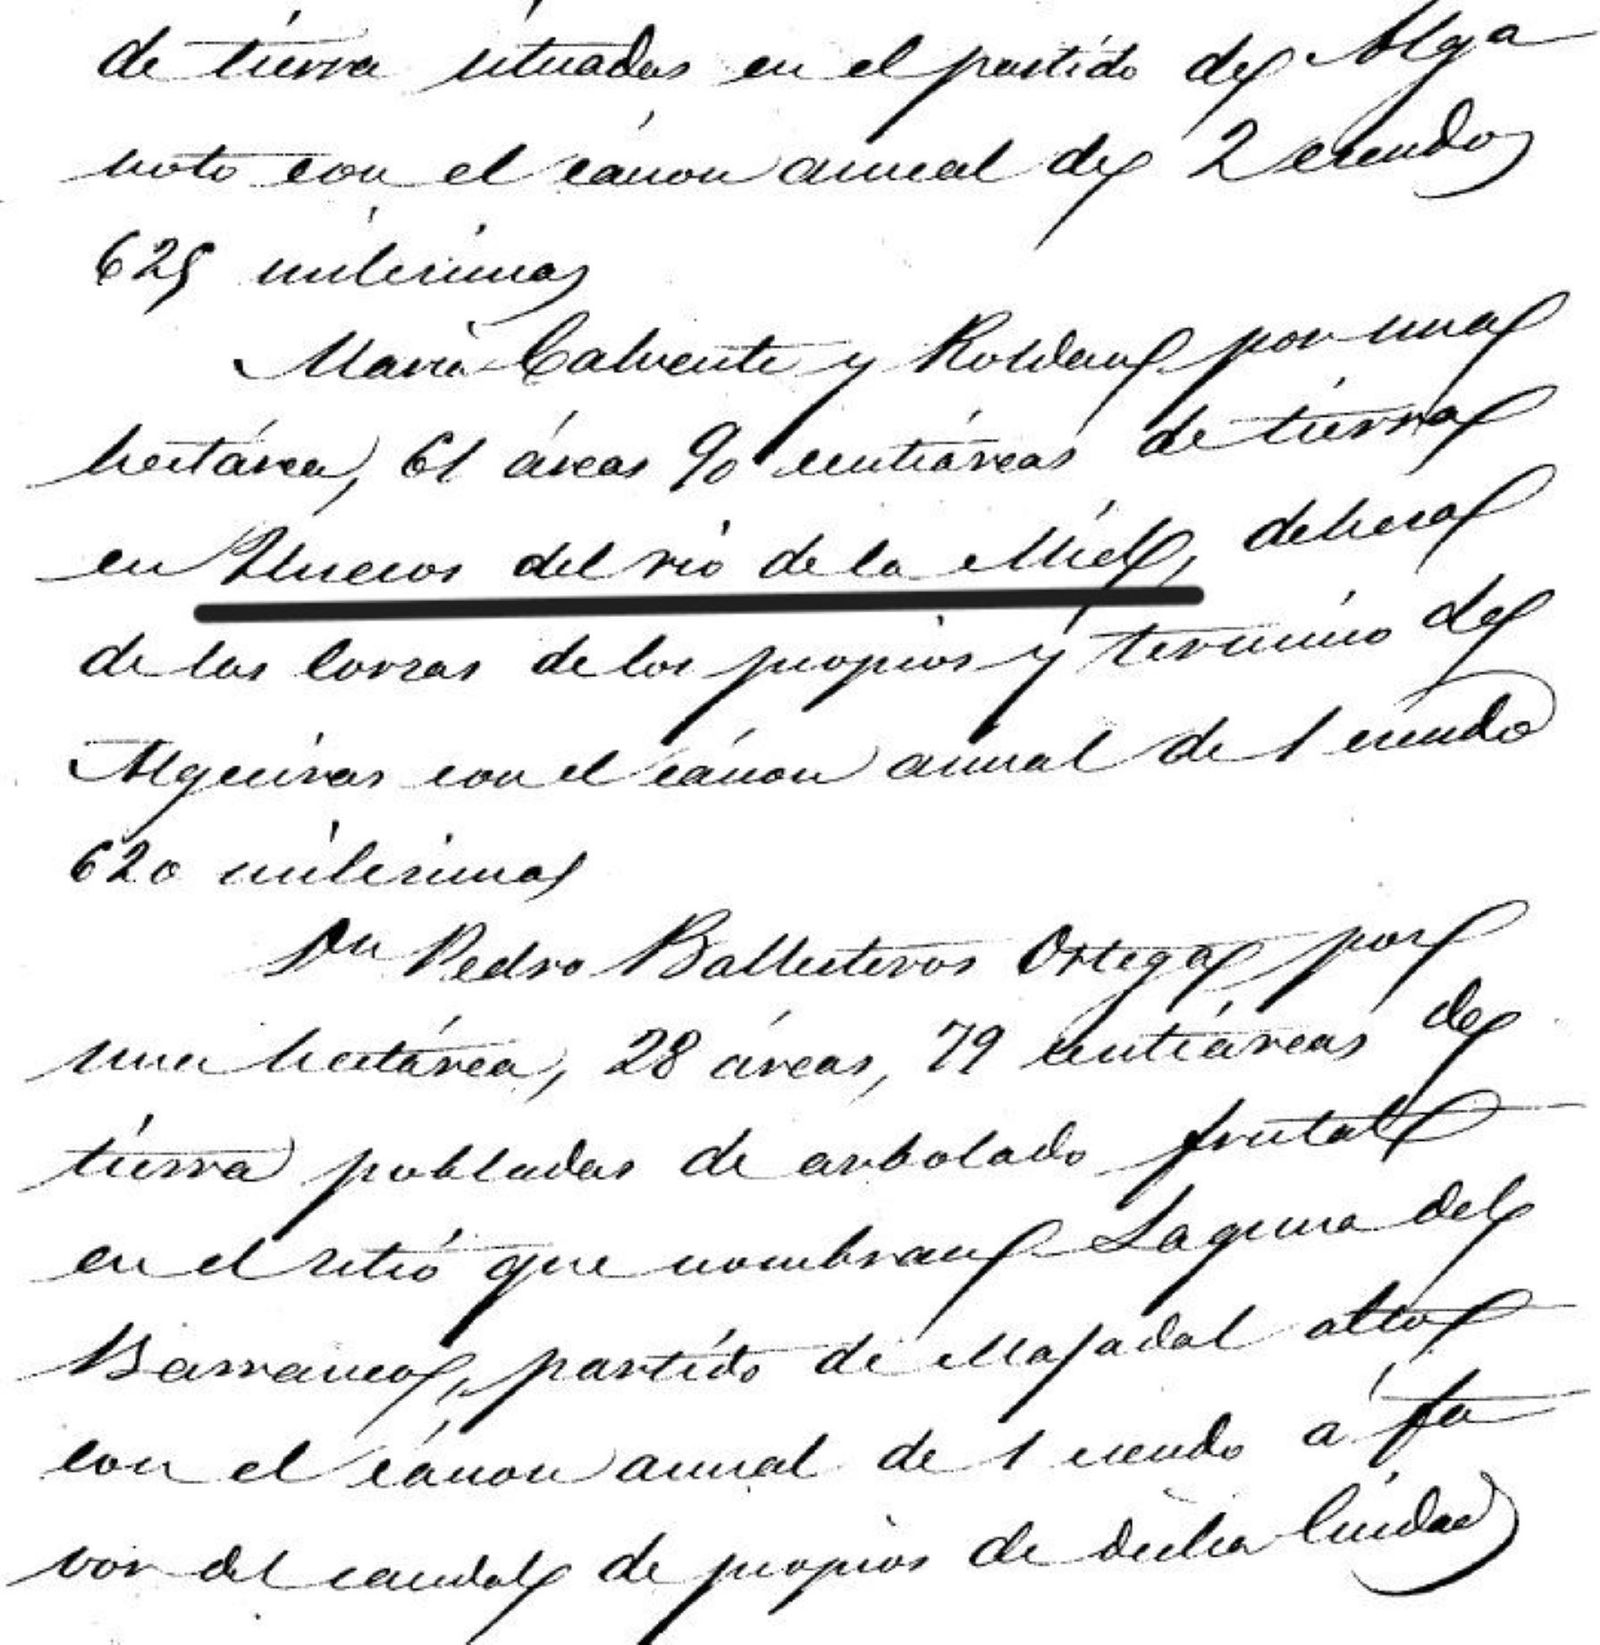 de tierra situadas en el partido de Alga
rroto con el cánon anual de 2 escudos
625 milesimas
Maria Calvente y Roldan por una
hectárea, 61 áreas 90 centiáreas de tierra
en Huecos del rio de la Miel, dehesa
de las Corzas de los propios y termino de
Algeciras con el cánon anual de 1 escudo
620 milesimas
Dn Pedro Ballesteros Ortega por
una hectárea, 28 áreas, 79 centiáreas de
tierra pobladas de arbolado frutal
en el sitio que nombran Laguna del
Barranco, partido de Majadal alto
con el cánon anual de 1 escudo á fa
vor del caudal de propios de dicha Ciudad